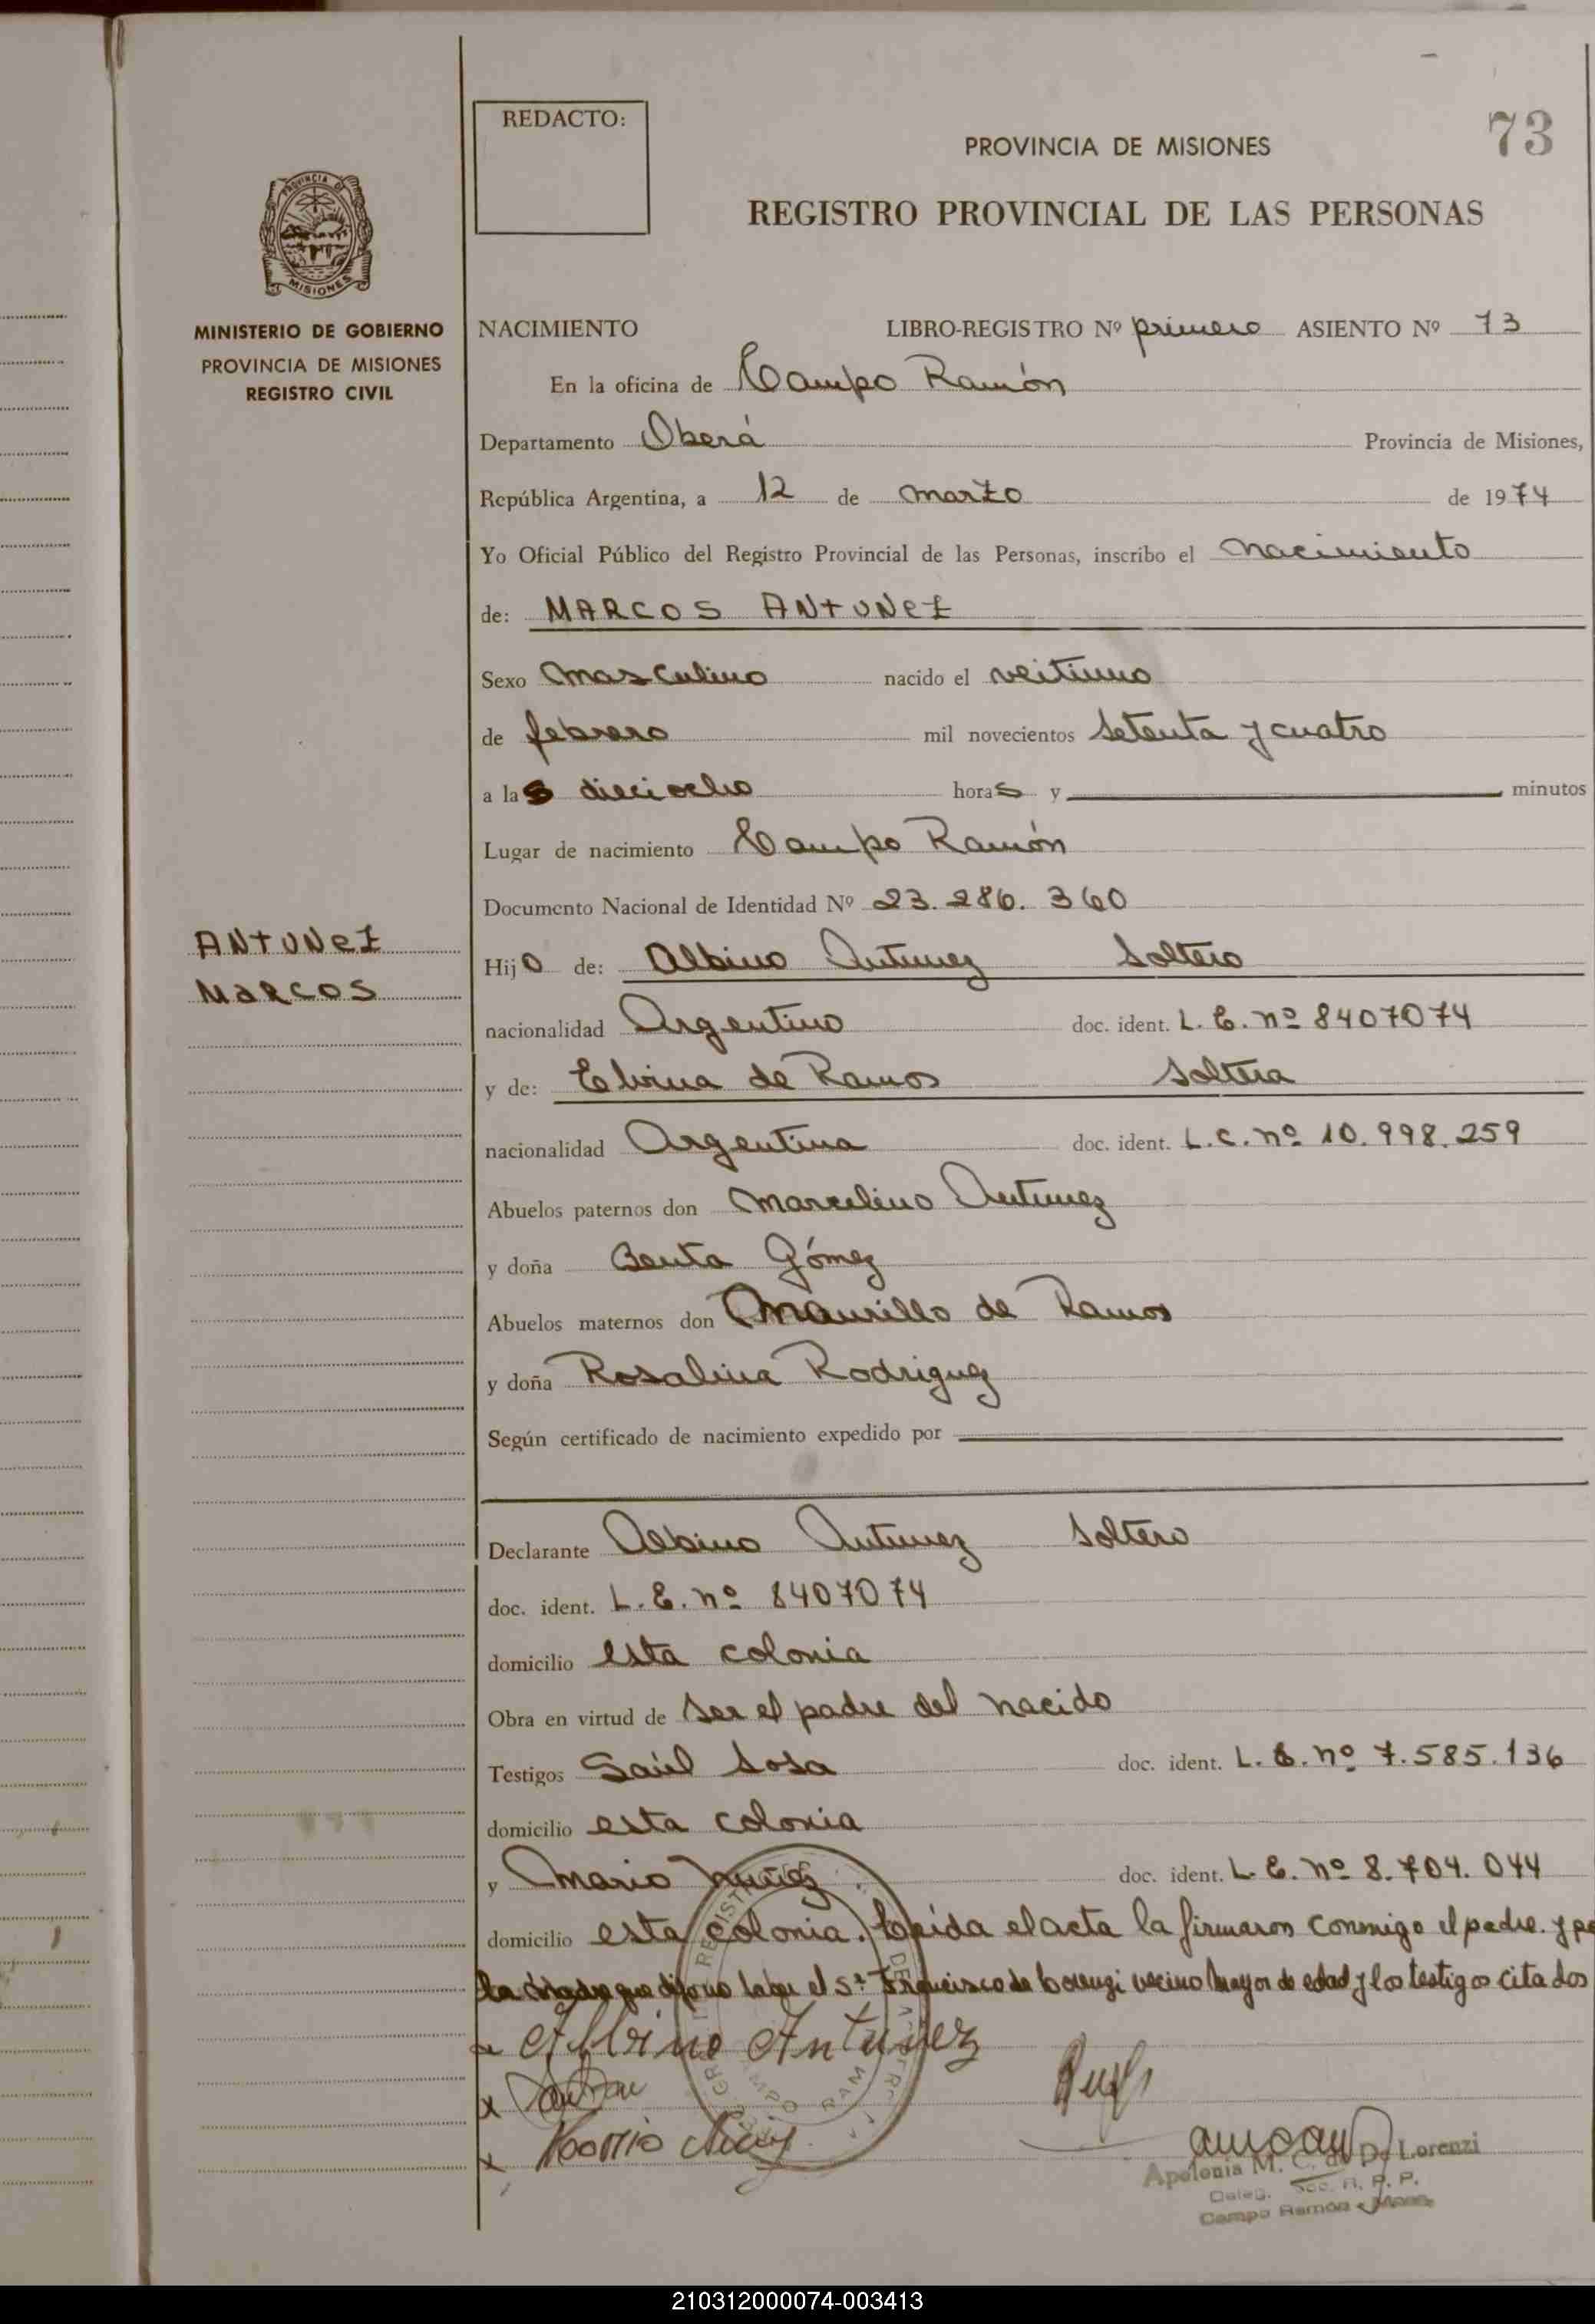 REDACTO:
73
PROVINCIA DE MISIONES
REGISTRO PROVINCIAL DE LAS PERSONAS
PROVINCIA DE
MISIONES
MINISTERIO DE GOBIERNO
PROVINCIA DE MISIONES
REGISTRO CIVIL
NACIMIENTO LIBRO-REGISTRO Nº primero ASIENTO Nº 73
En la oficina de Campo Ramón
Departamento Oberá Provincia de Misiones,
República Argentina, a 12 de marzo de 1974
Yo Oficial Público del Registro Provincial de las Personas, inscribo el nacimiento
de: MARCOS ANTUNEZ
Sexo masculino nacido el veitiuno
de febrero mil novecientos setenta y cuatro
a las dieciocho horas y minutos
Lugar de nacimiento Campo Ramón
Documento Nacional de Identidad Nº 23.286.360
ANTUNEZ
MARCOS
Hijo de: Albino Antunez Soltero
nacionalidad Argentino doc. ident. L. E. nº 8407074
y de: Elvina de Ramos Soltera
nacionalidad Argentina doc. ident. L.C. nº 10.998.259
Abuelos paternos don Marcelino Antunez
y doña Benta Gómez
Abuelos maternos don Maurillo de Ramos
y doña Rosalina Rodriguez
Según certificado de nacimiento expedido por
Declarante Albino Antunez Soltero
doc. ident. L. E. nº 8407074
domicilio esta colonia
Obra en virtud de ser el padre del nacido
Testigos Saúl Sosa doc. ident. L. E. nº 7.585.136
domicilio esta colonia
y Mario Nuñez doc. ident. L. E. nº 8.704.044
domicilio esta colonia. Leída el acta la firmaron conmigo el padre. y po
la madre que dijo no saber el Sr Francisco de Lorenzi vecino mayor de edad y los testigos citados
Albino Antunez
Apolonia M. C. de De Lorenzi
Deleg. Sec. R. P. P.
Campo Ramón - Mnes.
210312000074-003413